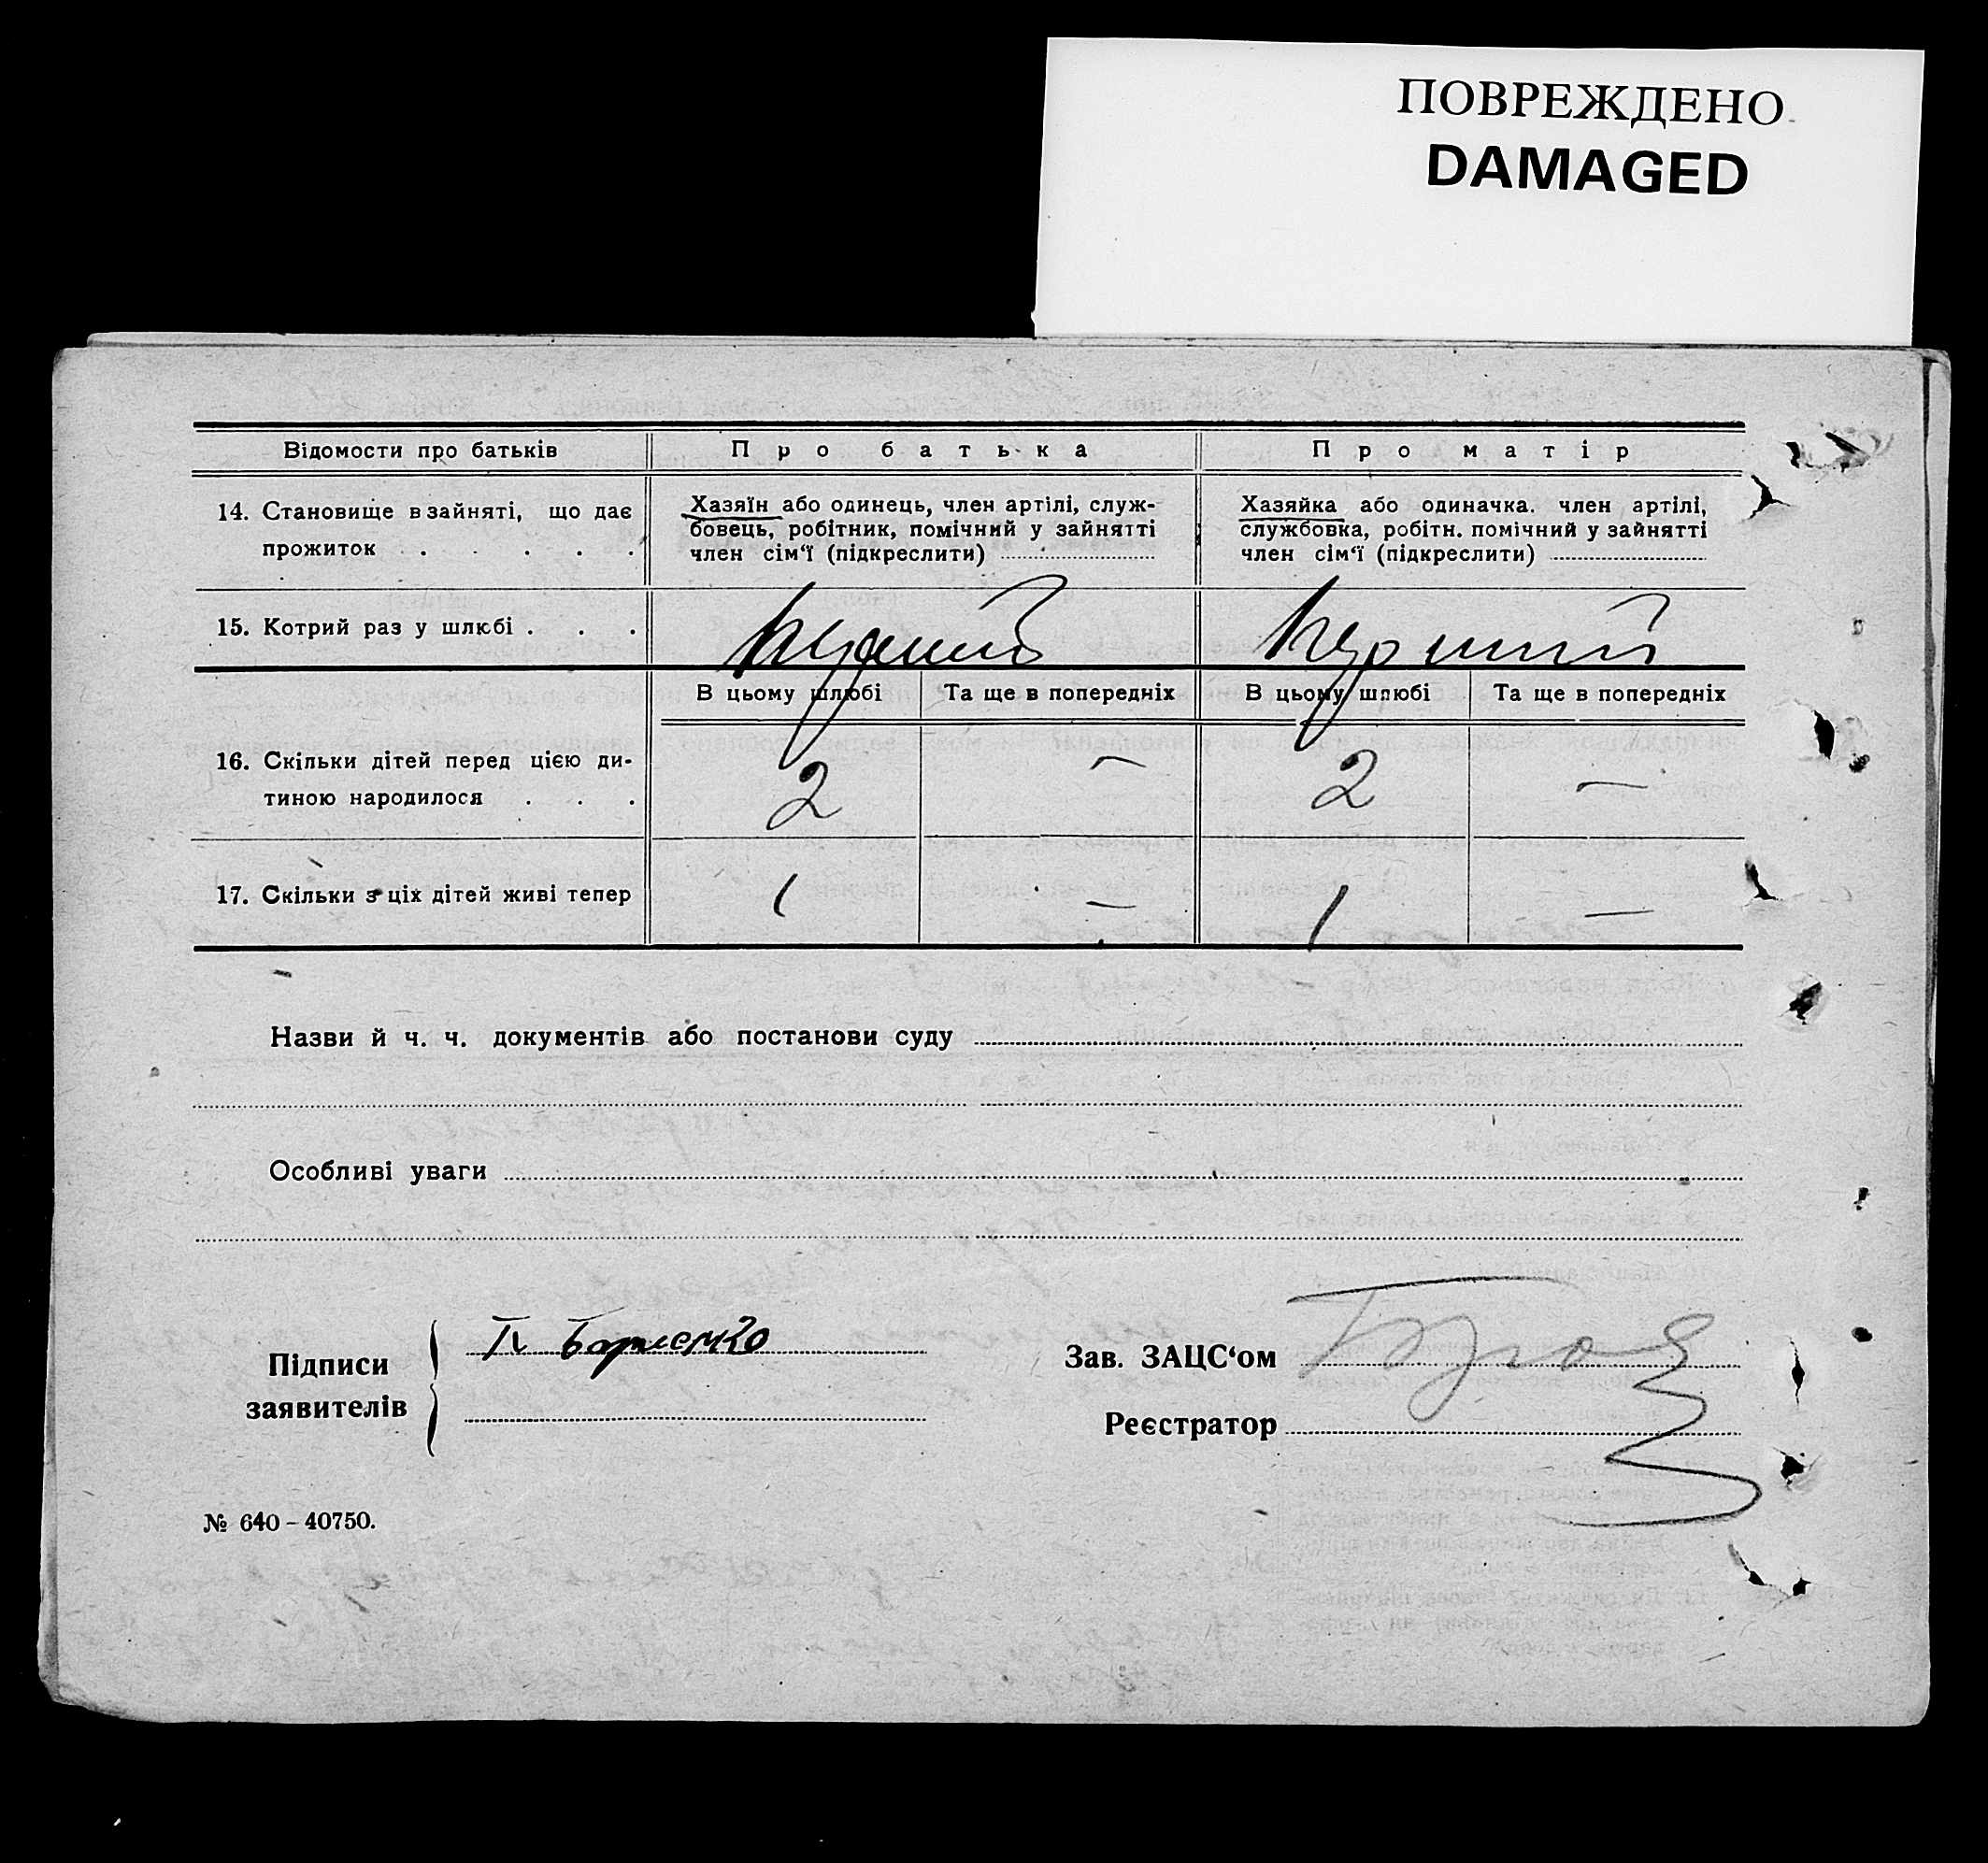 ПОВРЕЖДЕНО
DAMAGED
Відомости про батьків
Про батька
Про матір
14. Становище в зайняті, що дає
прожиток . . . . .
Хазяїн або одинець, член артілі, служ-
бовець, робітник, помічний у зайнятті
член сім'ї (підкреслити)
Хазяйка або одиначка. член артілі,
службовка, робітн. помічний у зайнятті
член сім'ї (підкреслити)
15. Котрий раз у шлюбі . . .
перший
перший
В цьому шлюбі
Та ще в попередніх
В цьому шлюбі
Та ще в попередніх
16. Скільки дітей перед цією ди-
тиною народилося . . .
2
—
2
—
17. Скільки з ціх дітей живі тепер
1
—
1
—
Назви й ч. ч. документів або постанови суду
Особливі уваги
Підписи
заявителів
Зав. ЗАЦС'ом
Реєстратор
№ 640 – 40750.